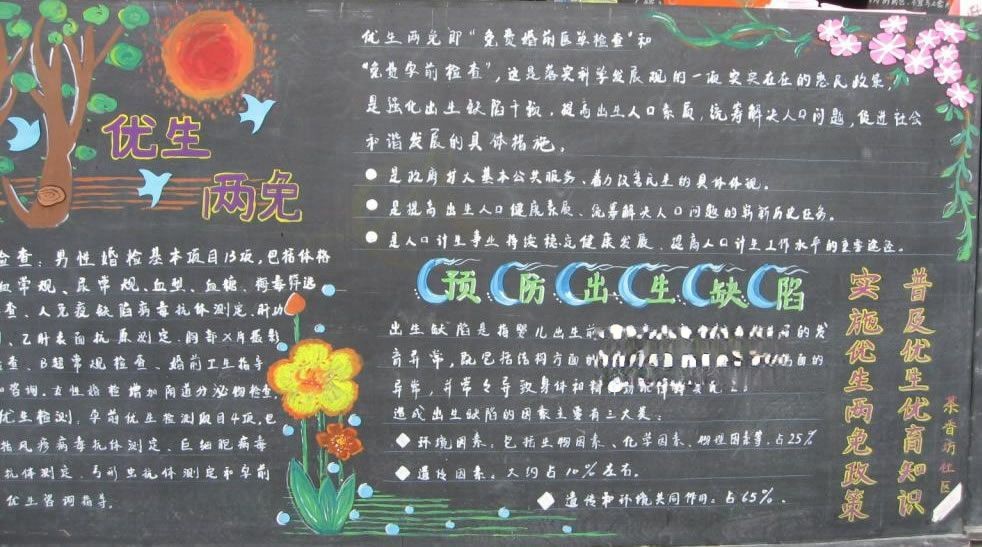 优生
两免
查：男性婚检基本项目13项，包括体格
常规、尿常规、血型、血糖、梅毒筛选
查、人免疫缺陷病毒抗体测定、肝功
、乙肝表面抗原测定、胸部X片摄影
查、B超常规检查、婚前卫生指导
咨询。女性婚检增加阴道分泌物检查
优生检测：孕前优生检测项目4项，包
括风疹病毒抗体测定、巨细胞病毒
抗体测定、弓形虫抗体测定和孕前
优生咨询指导。
优生两免即“免费婚前医学检查”和
“免费孕前检查”，这是落实科学发展观的一项实实在在的惠民政策，
是强化出生缺陷干预，提高出生人口素质，统筹解决人口问题，促进社会
和谐发展的具体措施。
是政府扩大基本公共服务、着力改善民生的具体体现。
是提高出生人口健康素质、统筹解决人口问题的崭新历史任务。
是人口计生事业持续稳定健康发展、提高人口计生工作水平的重要途径。
预防出生缺陷
出生缺陷是指婴儿出生前 的发
育异常，既包括结构方面的 面的
异常，并常令导致身体和
造成出生缺陷的因素主要有三大类：
环境因素。包括生物因素、化学因素、物理因素等，占25%
遗传因素。大约占10%左右。
遗传和环境共同作用。占65%。
普及优生优育知识
实施优生两免政策
社区